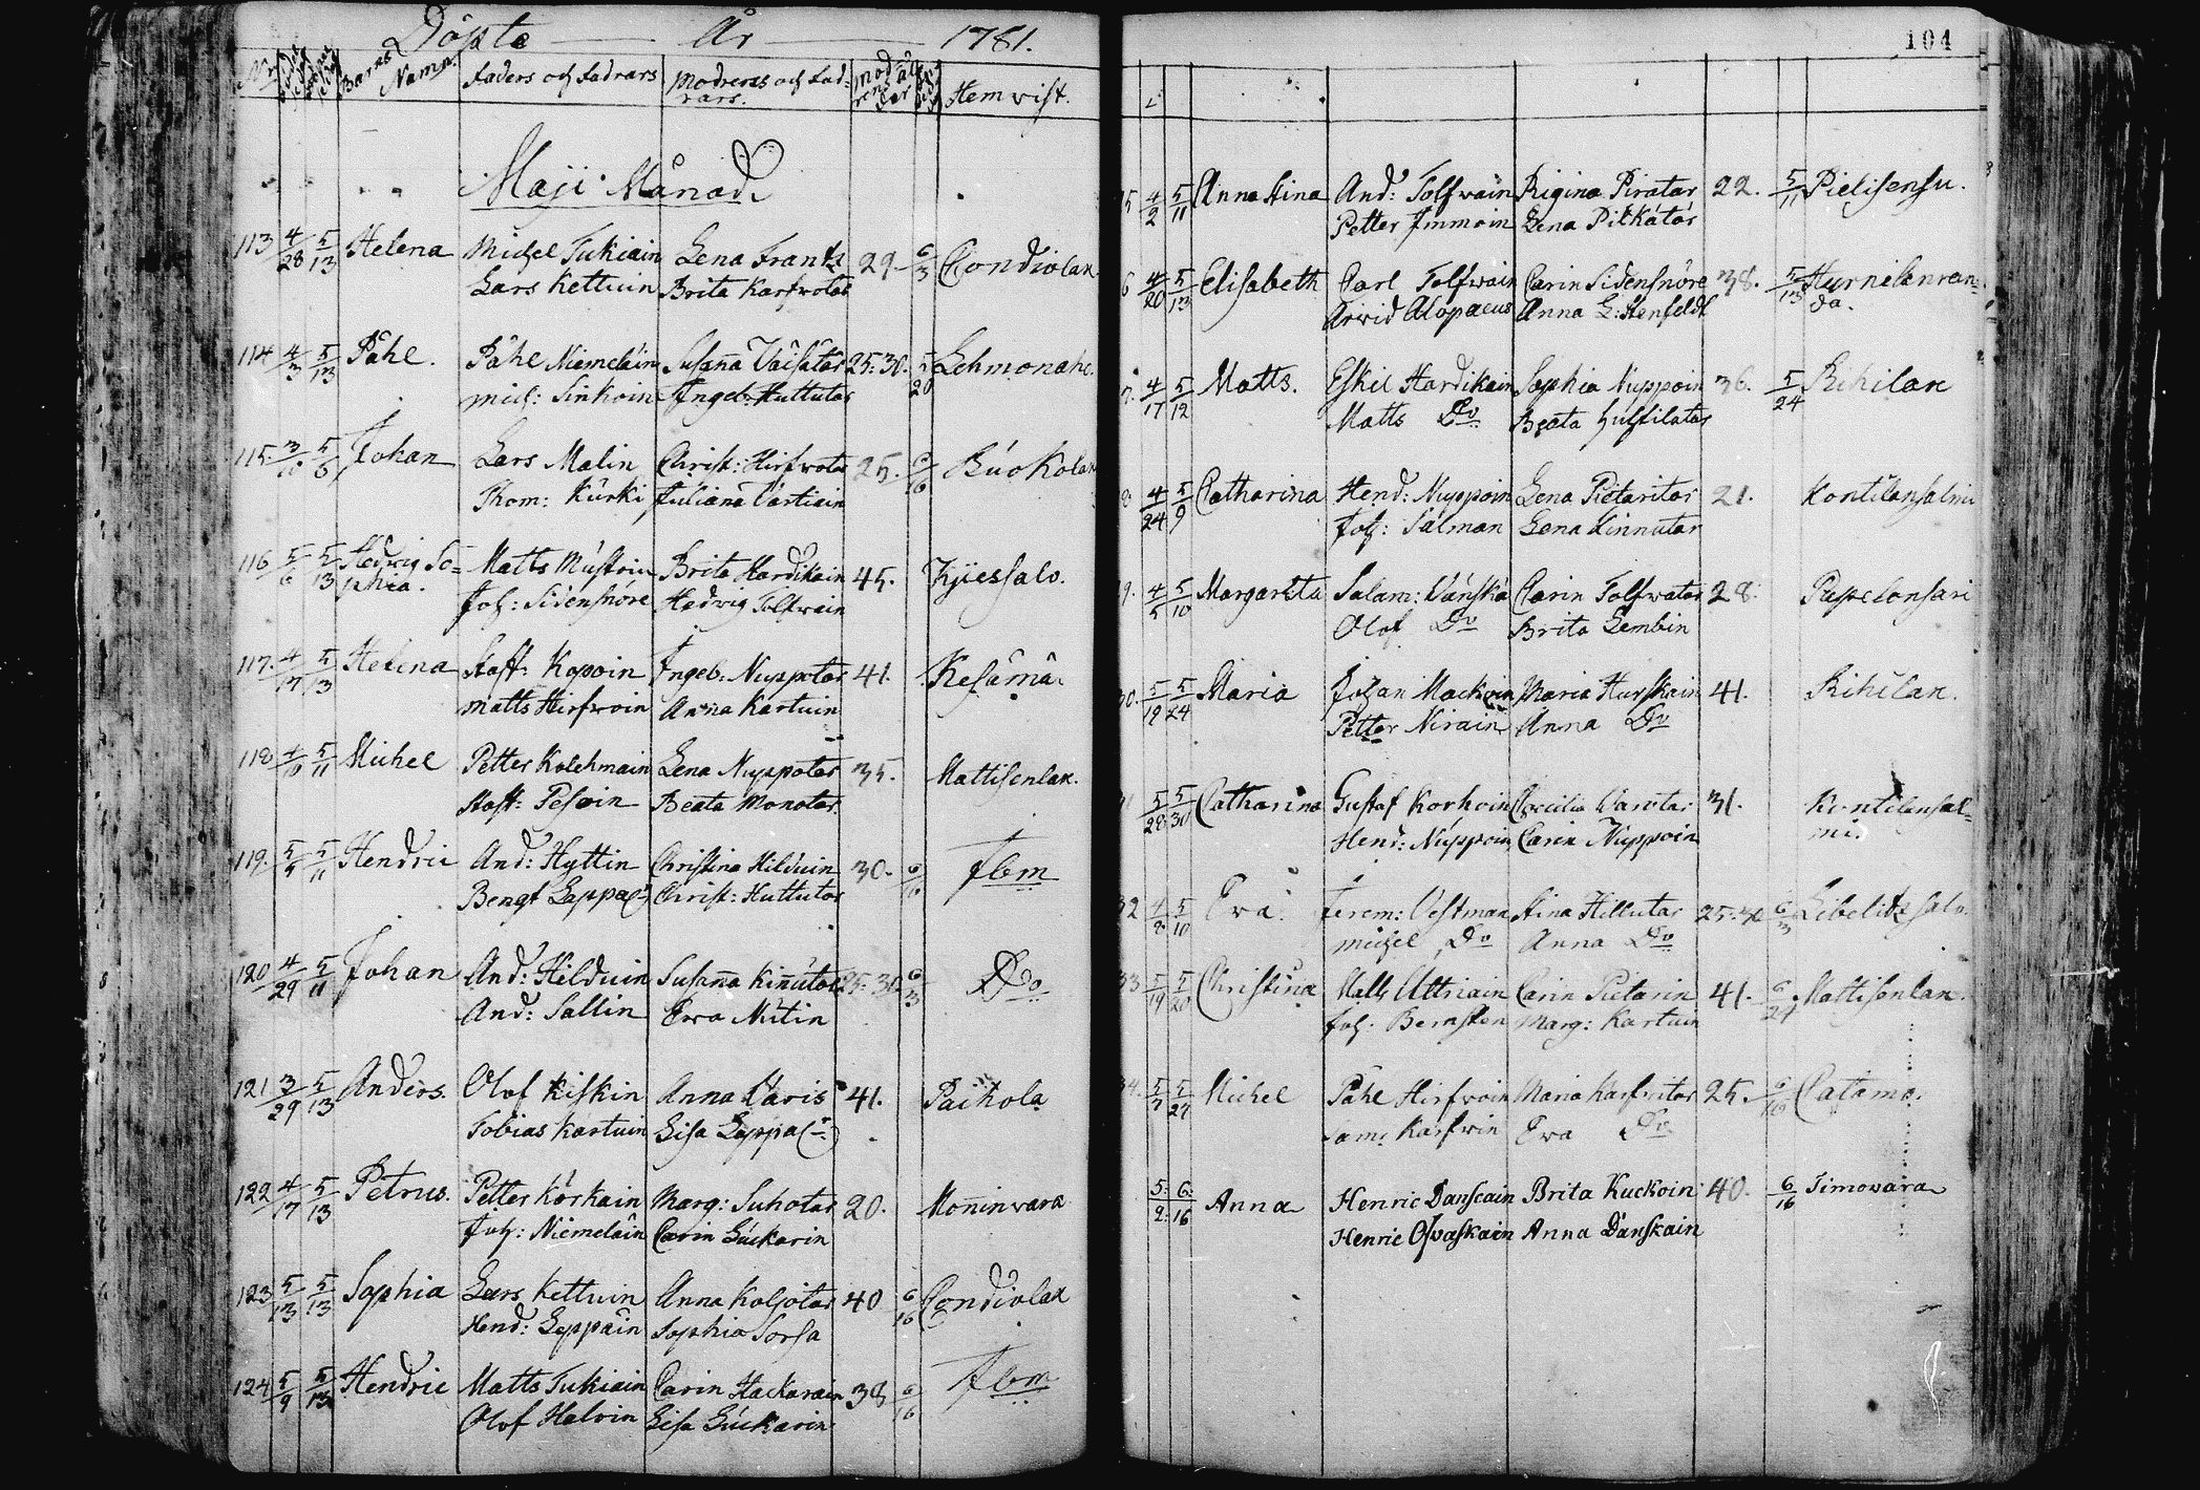 Döpte År 1781.
104
Nr Barns Namn. Faders och Fadrars Modrens och Fad=
rars. Modrens ålder Hemvist.
Maji Månad.
113 4/28 5/13 Helena Michel Tukiain Lena Frantz 29. 6/3 Condiolax
Lars Kettuin Brita Karfwotar
114 4/3 5/13 Påhl. Påhl Niemeläin Susanna Väisätär 25:30. 5/20 Lehmonaho
mich: Sinkoin Ingeb: Huttutar
115. 3/11 5/6 Johan Lars Malin Christ: Hirfwotar 25. 6/16 Kuokolax
Thom: Kurki Juliana Vartiain
116 5/6 5/13 Hedwig So=
phia. Matts Mustoin Brita Hardikain 45. Kyiessalo.
Joh: Sidensnöre Hedwig Tolfwain
117. 4/17 5/13 Helena Staff: Kopoin Ingeb: Nuppotar 41. Kesämä
Matts Hirfwoin Anna Kartuin
118 4/10 5/11 Michel Petter Kolehmain Lena Nuppotar 35. Mattisenlax.
Staff: Pesoin Beata Monotar.
119. 5/5 5/11 Hendric And: Hyttin Christina Hilduin 30. 6/10 Ibm
Bengt Lappa Christ: Huttutar
120 4/29 5/11 Johan And: Hilduin Susanna Kinnutar 25:30. 6/3 Do
And: Sallin Ewa Nutin
121 3/29 5/13 Anders. Olof Kiskin Anna Varis 41. Paihola
Tobias Kartuin Lisa Lappa
122 4/17 5/13 Petrus. Petter Korkain Marg: Suhotar 20. Monninvara
Joh: Niemeläin Carin Luckarin
123 5/13 5/13 Sophia Lars Kettuin Anna Koljotar 40 6/16 Condiolax
Hend: Leppäin Sophia Sorsa
124 5/9 5/13 Hendric Matts Tukiain Carin Hackarain 38 6/16 Ibm
Olof Halvin Lisa Luckarin
5 4/2 5/11 Anna Stina And: Tolfwain Rigina Piratar 22. 5/11 Pielisensu.
Petter Immoin Lena Pitkätär
6 4/20 5/13 Elisabeth Carl Tolfwain Carin Sidensnöre 38. 5/13 Hurnilanran=
da.
Arvid Alopaeus Anna L: Stenfeldt
7. 4/17 5/12 Matts. Eskil Hardikain Sophia Nuppoin 36. 5/24 Kihilax
Matts Do Beata Huskilatar
8 4/24 5/9 Catharina Hend: Nuppoin Lena Pietaritar 21. Kontilansalmi
Joh: Salman Lena Kinnutar
9. 4/5 5/10 Margareta Salam: Vänskä Carin Tolfwatar 28. Puspelonsari
Olof Do Brita Lembin
30. 5/19 5/24 Maria Johan Mackoin Maria Hurskain 41. Kihilax.
Petter Nirain Anna Do
5/28 5/30 Catharina Gustaf Korhoin Cecilia Varotar 31. Kontilansal=
mi.
Hend: Nuppoin Carin Nuppoin
32 4/8 5/10 Ewa. Jerem: Vestman Stina Hillutar 25:30 6/3 Libelitz salo.
Michel Do Anna Do
33 5/19 5/20 Christina Matts Uttriain Carin Pietarin 41. 6/27 Mattisenlax.
Joh: Bernsten Marg: Kartuin
34. 5/7 5/27 Michel Påhl Hirfwoin Maria Karfwitar 25. 6/10 Catamo.
Sam: Karfwin Ewa Do
5/2. 6/16 Anna Henric Danscain Brita Kuckoin 40. 6/16 Timovara
Henric Ovaskain Anna Danskain